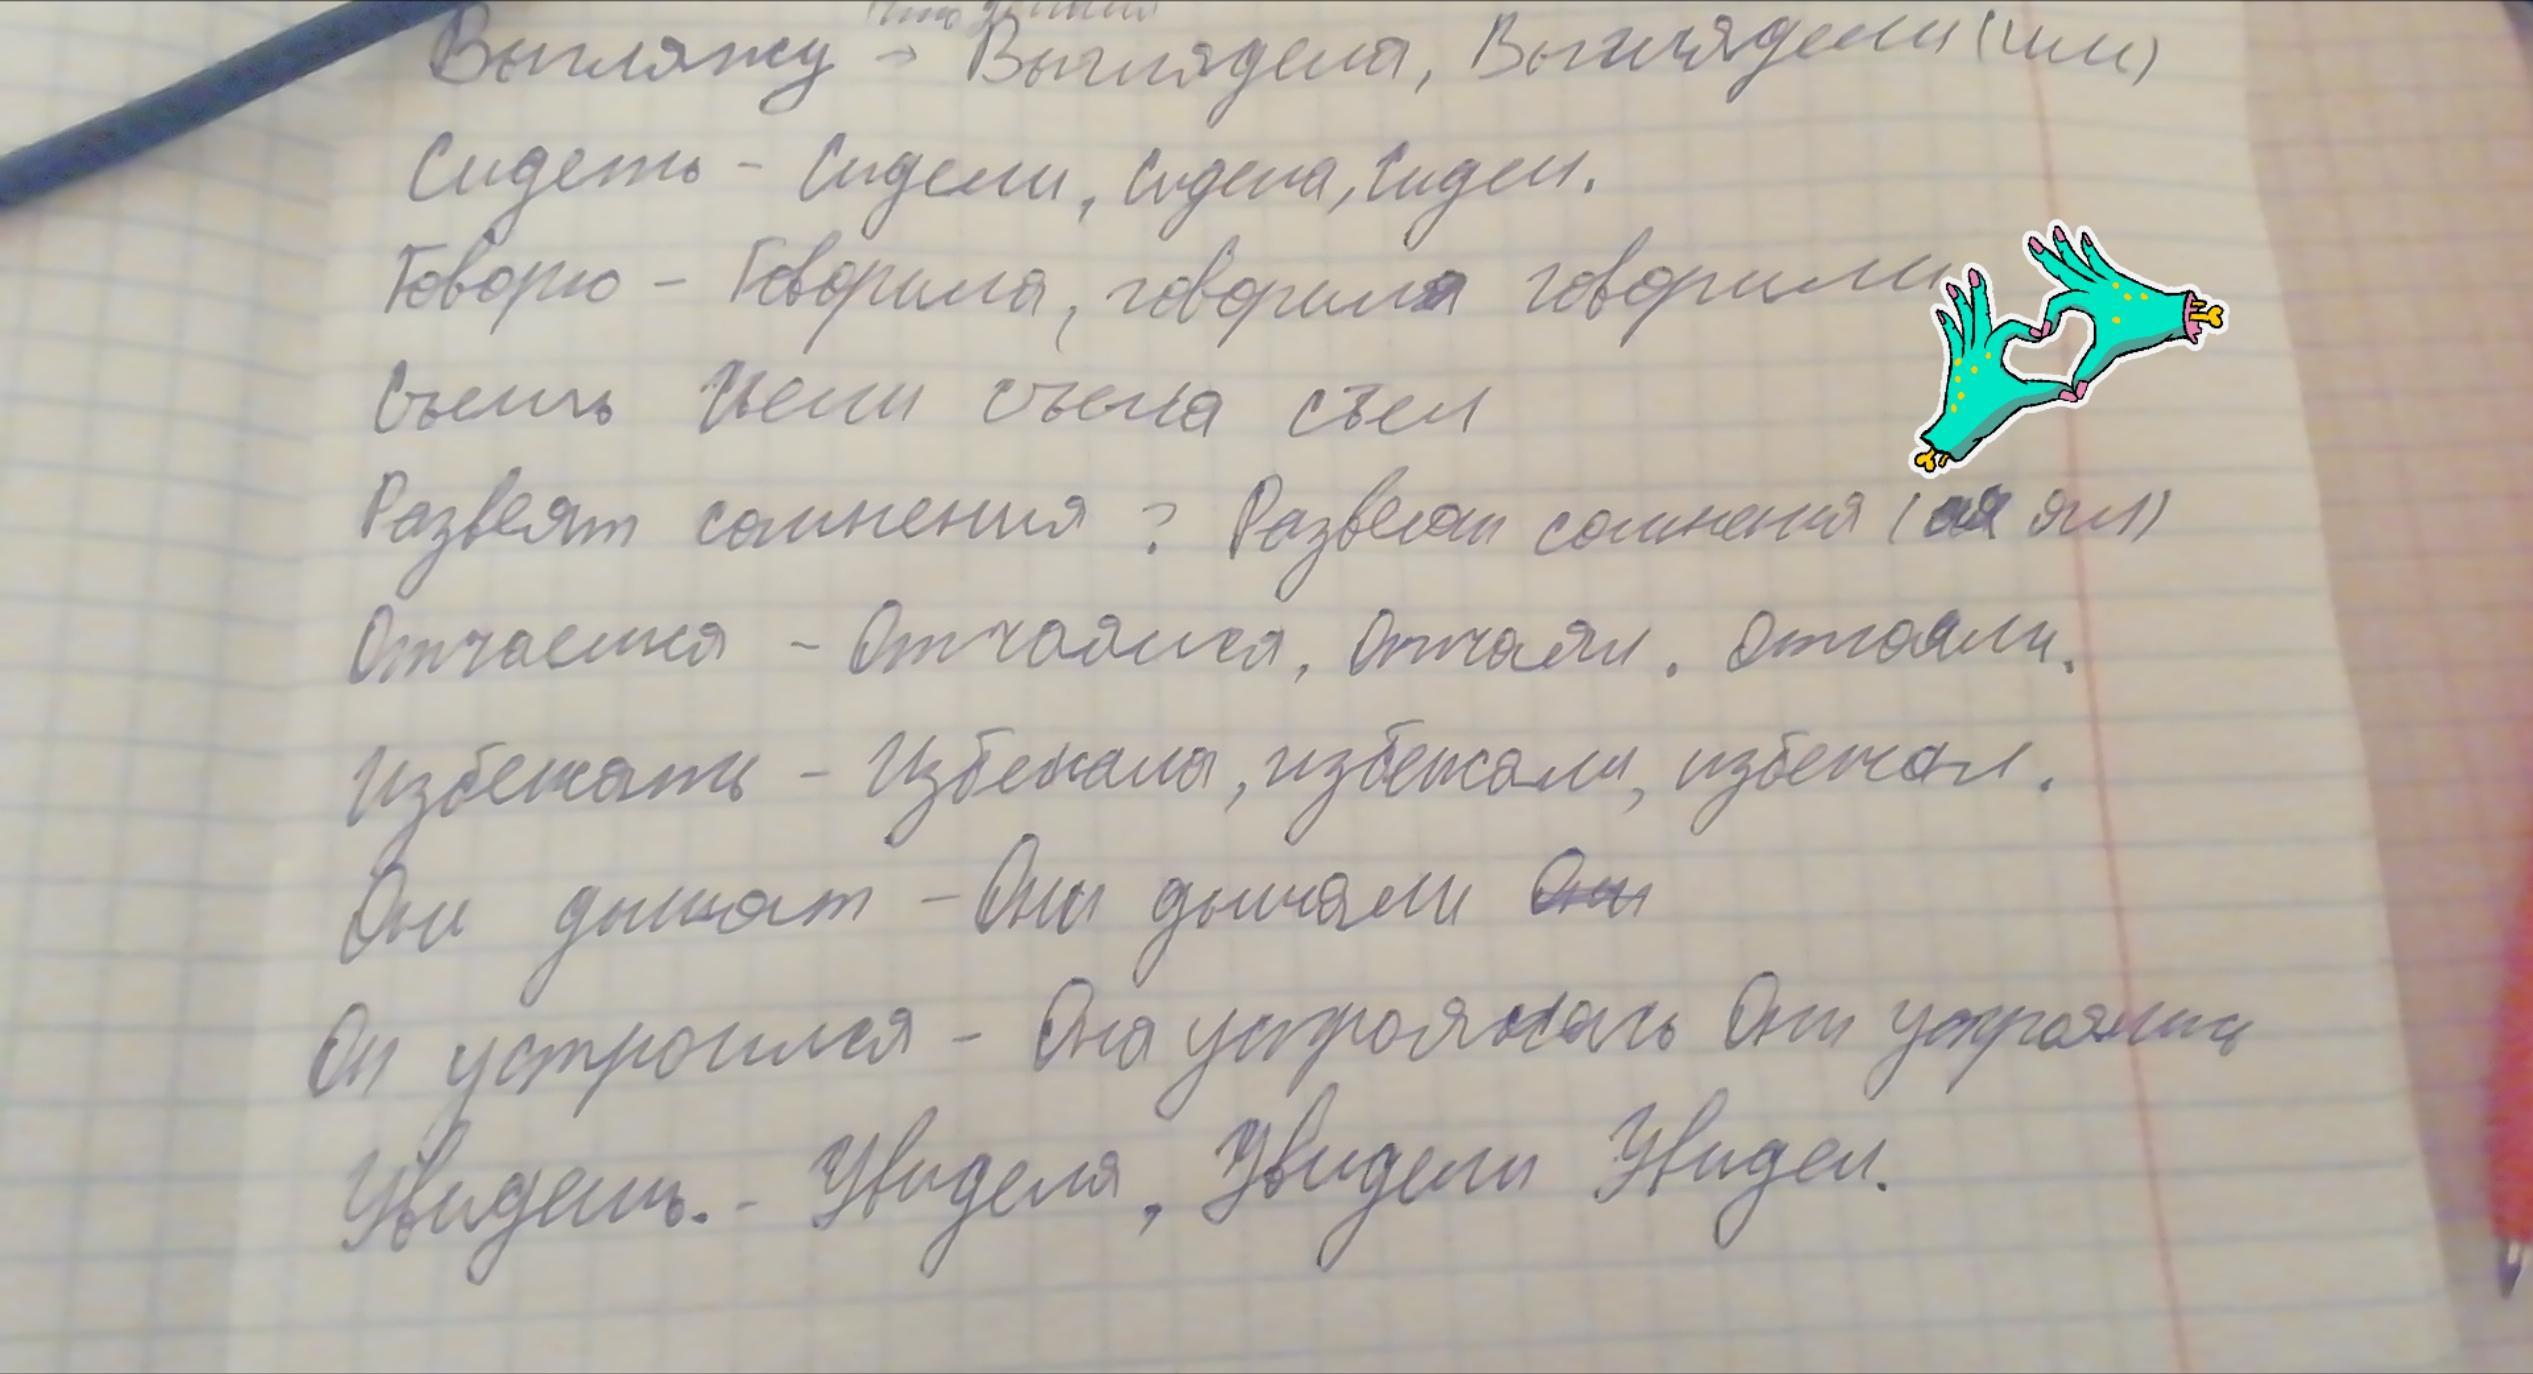 Выгляжу - Выглядела, Выглядели (или)
Сидеть - Сидели, Сидела, Сидел.
Говорю - Говорила, говорила говорили
Съешь съели съела съел
Развеят сомнения ? Развеял сомнения ( ял)
Отчаешся - Отчаялся, Отчаял. Отчаяли.
Избежать - Избежала, избежали, избежал.
Они дышат - Они дышали Они
Он устроился - Она Они
Увидешь. - Увиделя, Увидели Увидел.